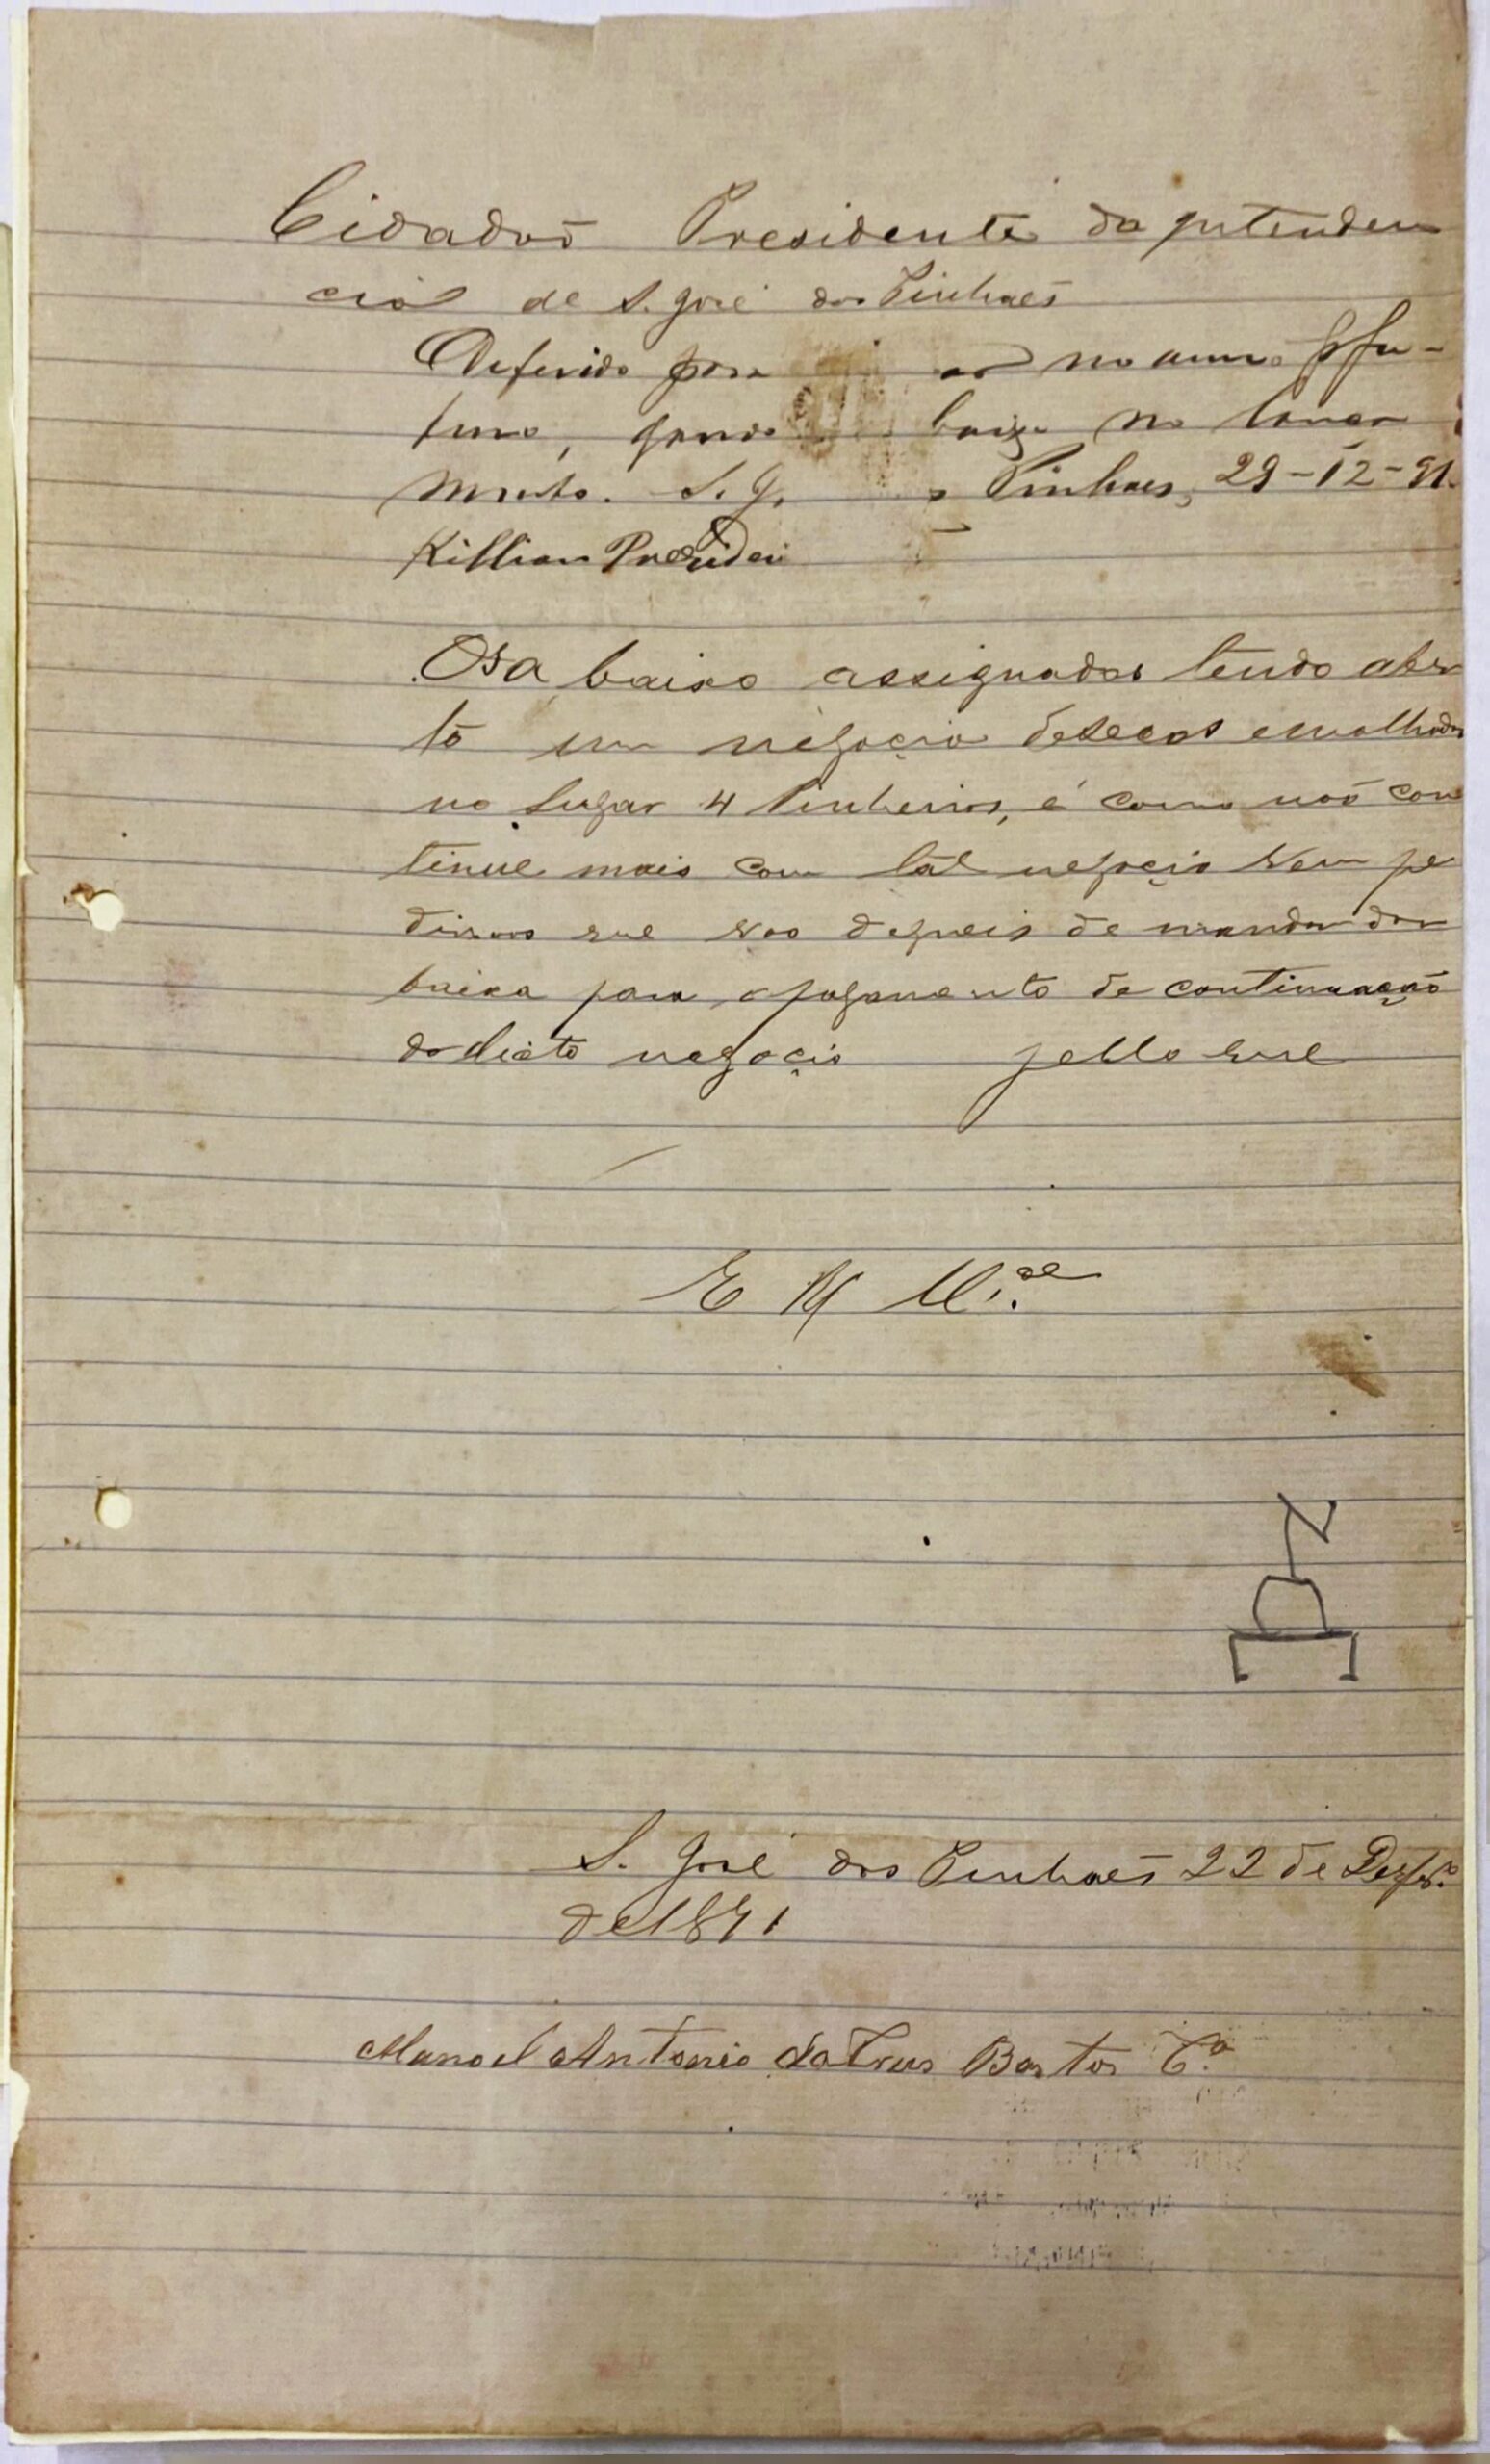 Cidadaõ Presidente da intenden
cial de S. José dos Pinhaes
Deferido para no anno p fu-
turo, dando baixa no lança
mento. S. J. Pinhaes, 29-12-91.
Killian Presiden
Os a baixo assignados tendo aber
to um negocio de secos e molhados
no lugar 4 Pinheiros, é como naõ con
tinue mais com tal negocio vem pe
dirmos que vos depneis de mandar dar
baixa para o pagamento de continuaçaõ
do dicto negocio pello que
E R M.ce
S. José dos Pinhaes 22 de Dezbr.º
de 1891
Manoel Antonio da Cruz Bastos C.ª